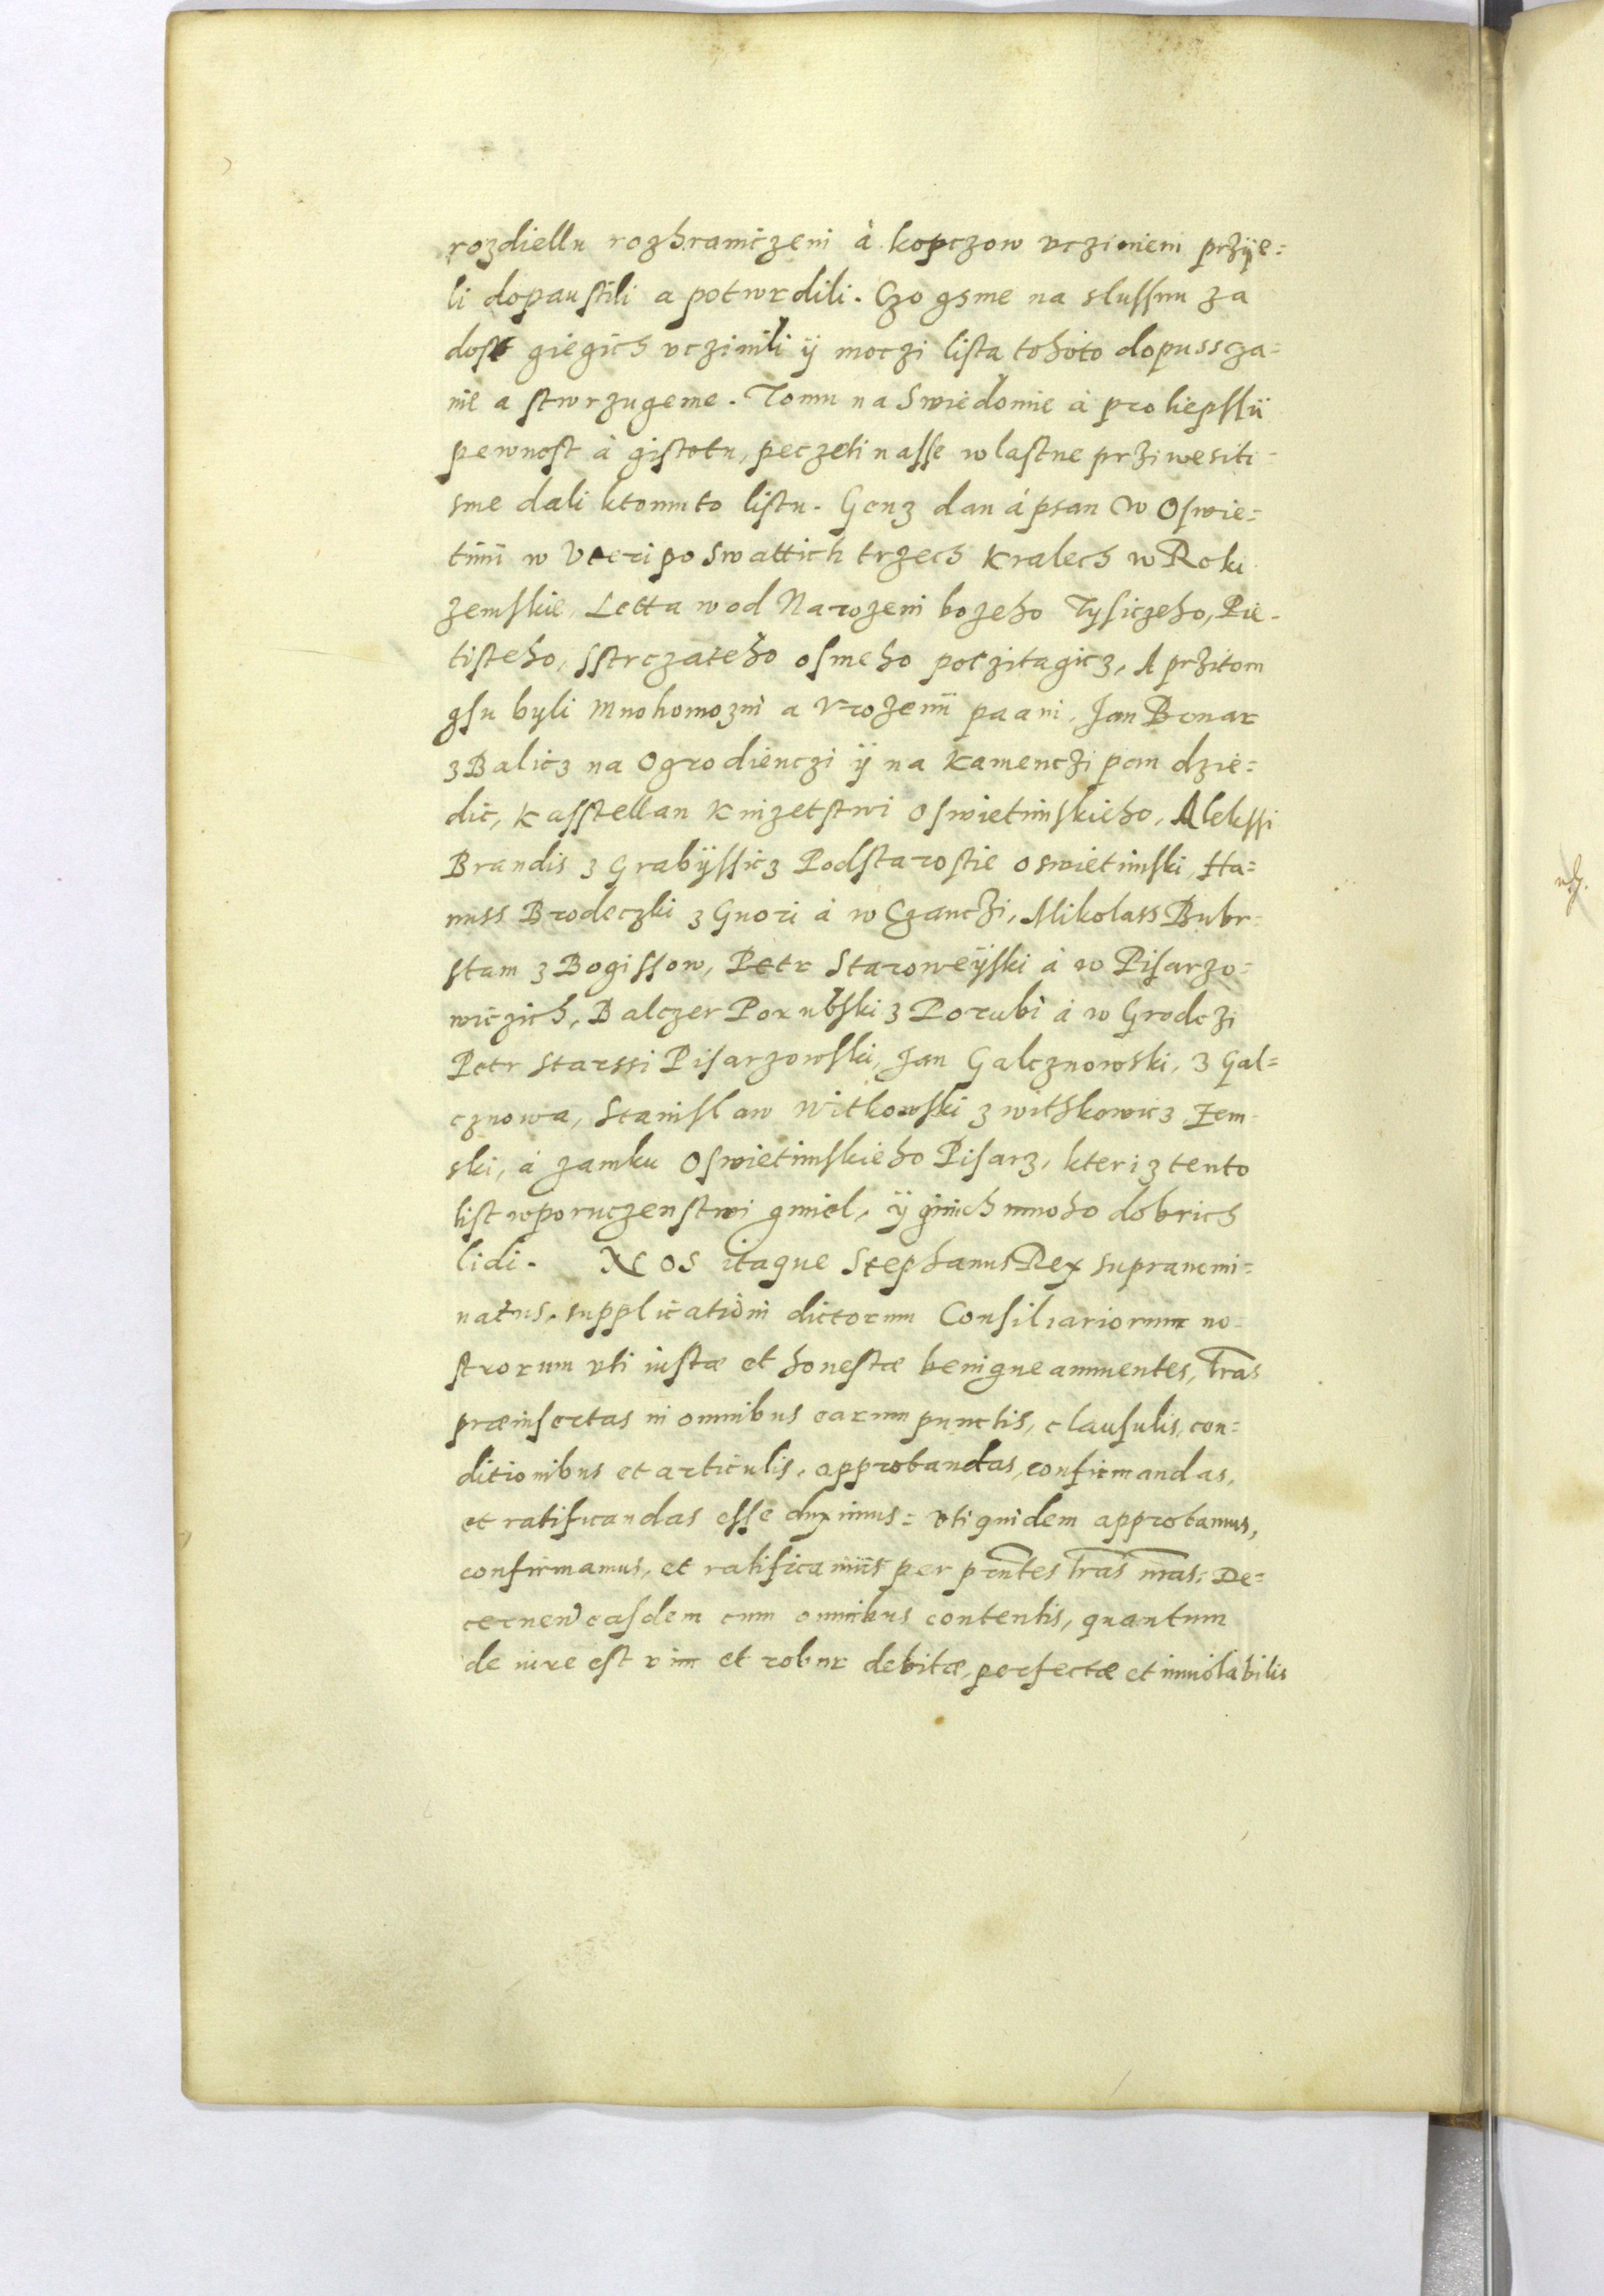 rozdiellu rozhraniczeni à kopczow vczinieni przÿe=
li dopaustili a potwrdili. Czo gsme na slussnu za
dost giegich vczinili ÿ moczi lista tohoto dopusscza=
nie a stwrzugeme. Tomu na Swiedomie à pro liepssÿ
pewnost à gistotu, peczeti nasse wlastne prziwesiti
sme dali ktomuto listu. Genz dan à psan w Oswie=
timi w Vteri po Swattich trzech Kralech w Roki
zemskie, Letta wod Narozeni bozeho Tysiczeho, Pie-
tisteho, sstrczateho osmeho poczitagicz, A przitom
gsu byli Mnohomozni a Vrozenii paani, Jan Bonar
z Balicz na Ogrodienczi ÿ na Kamenczi pan dzie=
dic, Kasstellan Knizetstwi Oswietimskieho, Alekssi
Brandis z Grabÿssicz Podstarostie oswietimski, Ha=
nuss Brodeczki z Gnori à w Czanczi, Mikolass Bubr=
stam z Bogissow, Petr Staroweÿski à w Pisarzo=
wiczich, Balczer Porubski z Porubi à w Grodczi
Petr Starssi Pisarzowski, Jan Galcznowski, z Gal=
cznowa, Stanislaw Witkowski z witskowicz Zem-
ski, à zamku Oswietimskieho Pisarz, kteriz tento
list wporuczenstwi gmiel, ÿ ginich mnoho dobrich
lidi. NOS itaque Stephanus Rex supranomi=
natus, supplicationi dictorum Consiliariorum no-
strorum vti iustæ et honestæ benigne annuentes, lras
præinsertas in omnibus earum punctis, clausulis, con=
ditionibus et articulis, approbandas, confirmandas,
et ratificandas esse duximus: vti quidem approbamus,
confirmamus, et ratificamus per pntes lras nras: De=
cernen easdem cum omnibus contentis, quantum
de iure est vim et robur debitæ, perfectæ et inuiolabilis